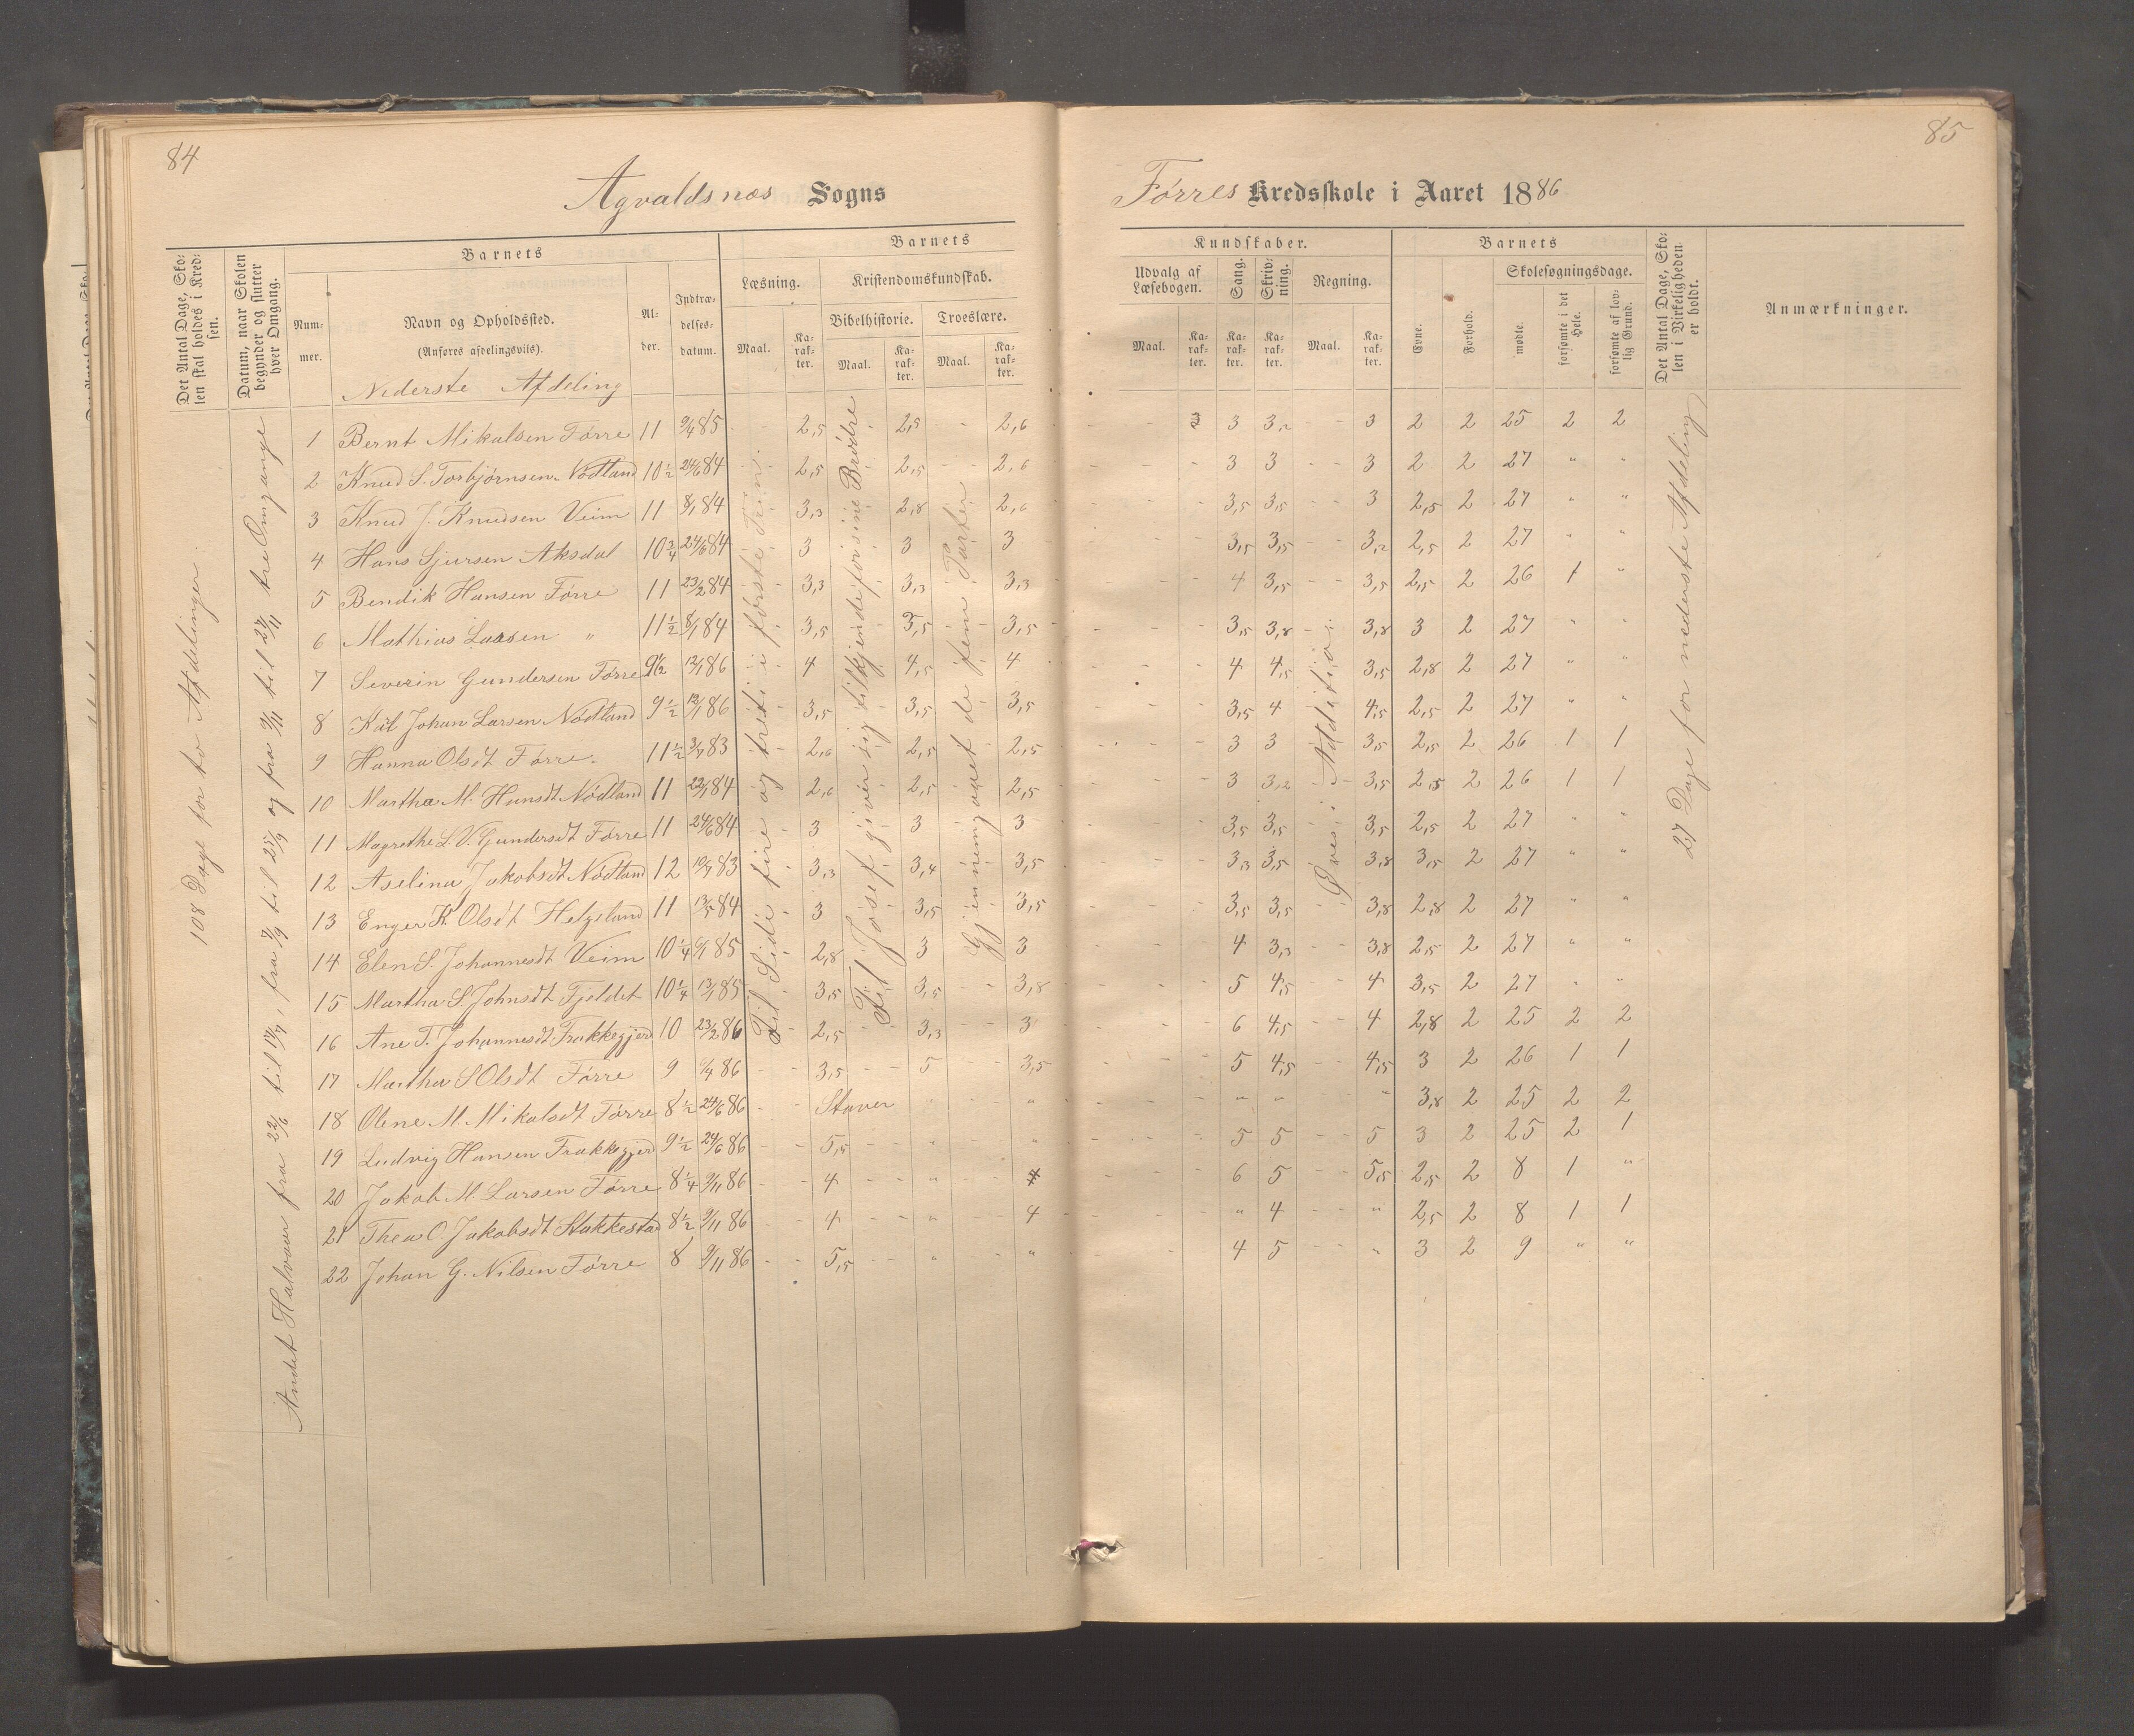 84
Agvaldsnæs Sogns
Det Antal Dage, Sko-
len skal holdes i Kred-
sen.
Datum, naar Skolen
begynder og slutter
hver Omgang.
Barnets
Num-
mer.
Navn og Opholdssted.
(Anføres afdelingsviis).
Al-
der.
Indtræ-
delses-
datum.
Barnets
Læsning.
Kristendomskundskab.
Maal.
Ka-
rak-
ter.
Bibelhistorie.
Troeslære.
Maal.
Ka-
rak-
ter.
Maal.
Ka-
rak-
ter.
Nederste Afdeling
108 Dage for to Afdelinger.
Andet Halvaar fra 22/6 til 17/7, fra 7/9 til 25/9 og fra 9/11 til 27/11 tre Omgange
Til Side fire og triti i første Trin.
Til Josef giver sig tilkjende for sine Brødre
Gjennemgaaet de fem Parter
1 Bernt Mikalsen Førre 11 9/4 85 2,5 2,5 2,6
2 Knud S. Torbjørnsen Nødland 10 1/2 24/6 84 2,5 2,5 2,6
3 Knud J. Knudsen Veim 11 8/1 84 3,3 2,8 2,6
4 Hans Sjursen Aksdal 10 3/4 24/6 84 3 3 3
5 Bendik Hansen Førre 11 23/2 84 3,3 3,3 3,3
6 Mathias Larsen " 11 1/2 8/1 84 3,5 3,5 3,5
7 Severin Gundersen Førre 9 1/2 12/1 86 4 4,5 4
8 Kal Johan Larsen Nødland 9 1/2 12/1 86 3,5 3,5 3,5
9 Hanna Olsdt Førre 11 1/2 3/7 83 2,6 2,5 2,5
10 Martha M. Hansdt Nødland 11 22/1 84 2,6 2,5 2,5
11 Magrethe L. V. Gundersdt Førre 11 24/6 84 3 3 3
12 Aselina Jakobsdt Nødland 12 10/7 83 3,3 3,4 3,5
13 Enger K. Olsdt Helgeland 11 13/5 84 3 3,5 3,5
14 Elen S. Johannesdt Veim 10 1/4 6/1 85 2,8 3 3
15 Martha S Johnsdt Fjeldet 10 1/4 13/1 85 3,5 3,5 3,8
16 Ane T. Johannesdt Frakkegjerd 10 23/2 86 2,5 3,3 3
17 Martha S Olsdt Førre 9 6/4 86 3,5 5 3,5
18 Olene M. Mikalsdt Førre 8 1/2 24/6 86 Staver " "
19 Ludvig Hansen Frakkegjerd 9 1/2 24/6 86 5,5 " "
20 Jakob M. Larsen Førre 8 1/4 9/11 86 4 " 4
21 Thea O Jakobsdt Stakkestad 8 1/2 9/11 86 4 " 4
22 Johan G. Nilsen Førre 8 9/11 86 5,5 " "
85
Førres Kredsskole i Aaret 1886
Kundskaber.
Udvalg af
Læsebogen.
Sang.
Skriv-
ning.
Regning.
Maal.
Ka-
rak-
ter.
Ka-
rak-
ter.
Ka-
rak-
ter.
Maal.
Ka-
rak-
ter.
Barnets
Evne.
Forhold.
Skolesøgningsdage.
mødte.
forsømte i det
Hele.
forsømte af lov-
lig Grund.
Det Antal Dage, Sko-
len i Virkeligheden
er holdt.
Anmærkninger.
Øves i Addition.
27 Dage for nederste Afdeling
3 3 3,2 3 2 2 25 2 2
3 3 3 2 2 27 " "
3,5 3,5 3 2,5 2 27 " "
3,5 3,5 3,2 2,5 2 27 " "
4 3,5 3,5 2,5 2 26 1 "
3,5 3,8 3,8 3 2 27 " "
4 4,5 3,5 2,8 2 27 " "
3,5 4 4,5 2,5 2 27 " "
3 3 3,5 2,5 2 26 1 1
3 3,2 3,5 2,5 2 26 1 1
3,5 3,5 3,5 2,5 2 27 " "
3,3 3,5 3,8 3,5 2 27 " "
3,5 3,5 3,8 2,8 2 27 " "
4 3,3 3,8 2,5 2 27 " "
5 4,5 4 3,5 2 27 " "
6 4,5 4 2,8 2 25 2 2
5 4,5 4,5 3 2 26 1 1
" " " 3,8 2 25 2 2
5 5 5 3 2 25 2 1
6 5 5,5 2,5 2 8 1 "
" 4 " 2,5 2 8 1 1
4 5 " 3 2 9 " "